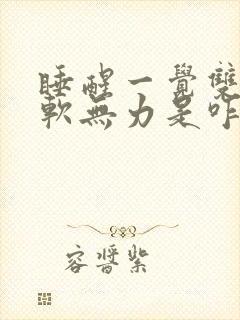 睡醒一覺雙
軟無力是咋
容醬紫